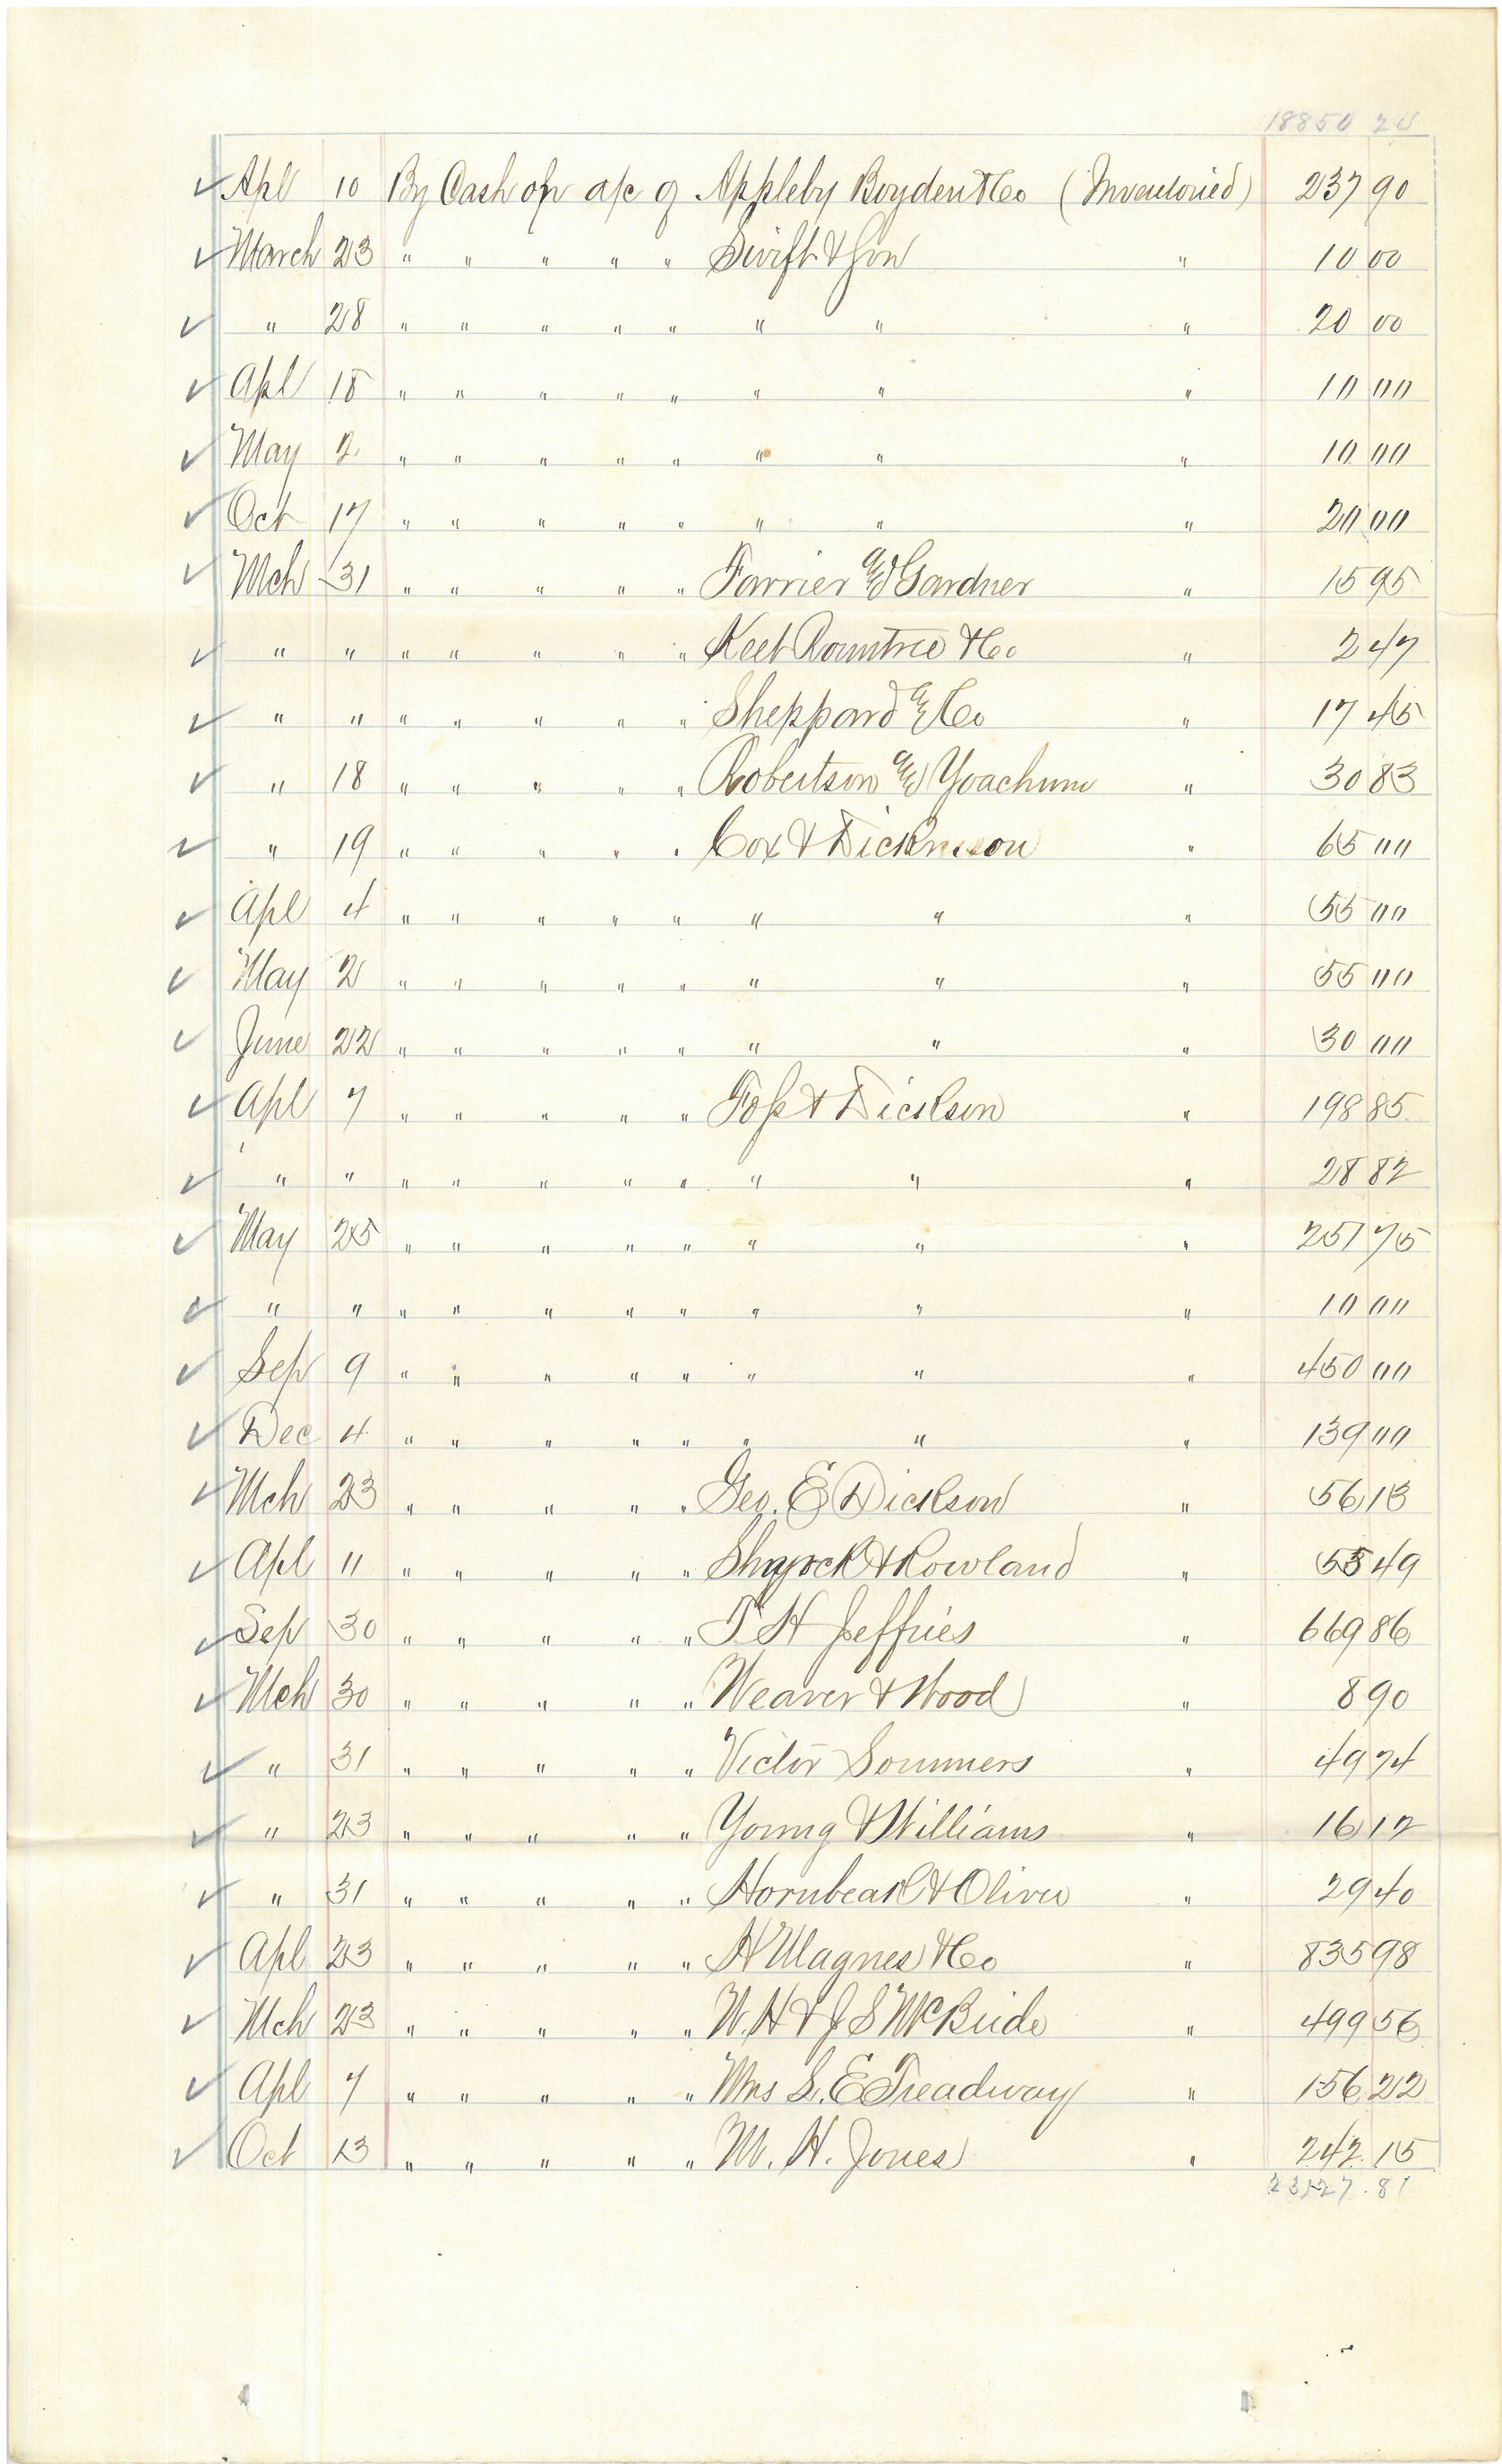 18850 24
Apl 10 By Cash op a/c of Appleby Boyden & Co (Inventoried) 237 90
March 23 " " " " " Swift & Son " 10 00
" 28 " " " " " " " " 20 00
Apl 15 " " " " " " " " 10 00
May 2 " " " " " " " " 10 00
Oct 17 " " " " " " " " 20 00
Mch 31 " " " " " Farrier & Gardner " 15 95
" " " " " " " Keet Rountree & Co " 2 47
" " " " " " " Sheppard & Co " 17 45
" 18 " " " " " Robertson & Yoachum " 30 83
" 19 " " " " " Cox & Dickinson " 65 00
Apl 4 " " " " " " " " 55 00
May 2 " " " " " " " " 55 00
June 22 " " " " " " " " 30 00
Apl 7 " " " " " Foss & Dickson " 198 85
" " " " " " " " " " 28 82
May 25 " " " " " " " " 251 75
" " " " " " " " " " 10 00
Sep 9 " " " " " " " " 450 00
Dec 4 " " " " " " " " 139 00
Mch 23 " " " " " Geo. E Dickson " 56 13
Apl 11 " " " " " Shyrock & Rowland " 55 49
Sep 30 " " " " " T H Jeffries " 669 86
Mch 30 " " " " " Weaver & Wood " 8 90
" 31 " " " " " Victor Sommers " 49 74
" 23 " " " " " Young & Williams " 16 12
" 31 " " " " " Hornbeak & Oliver " 29 40
Apl 23 " " " " " H Magnes & Co " 835 98
Mch 23 " " " " " W. H & J S McBride " 499 56
Apl 7 " " " " " Mrs L. E Treadway " 156 22
Oct 13 " " " " " M. H. Jones " 242 15
23127.81